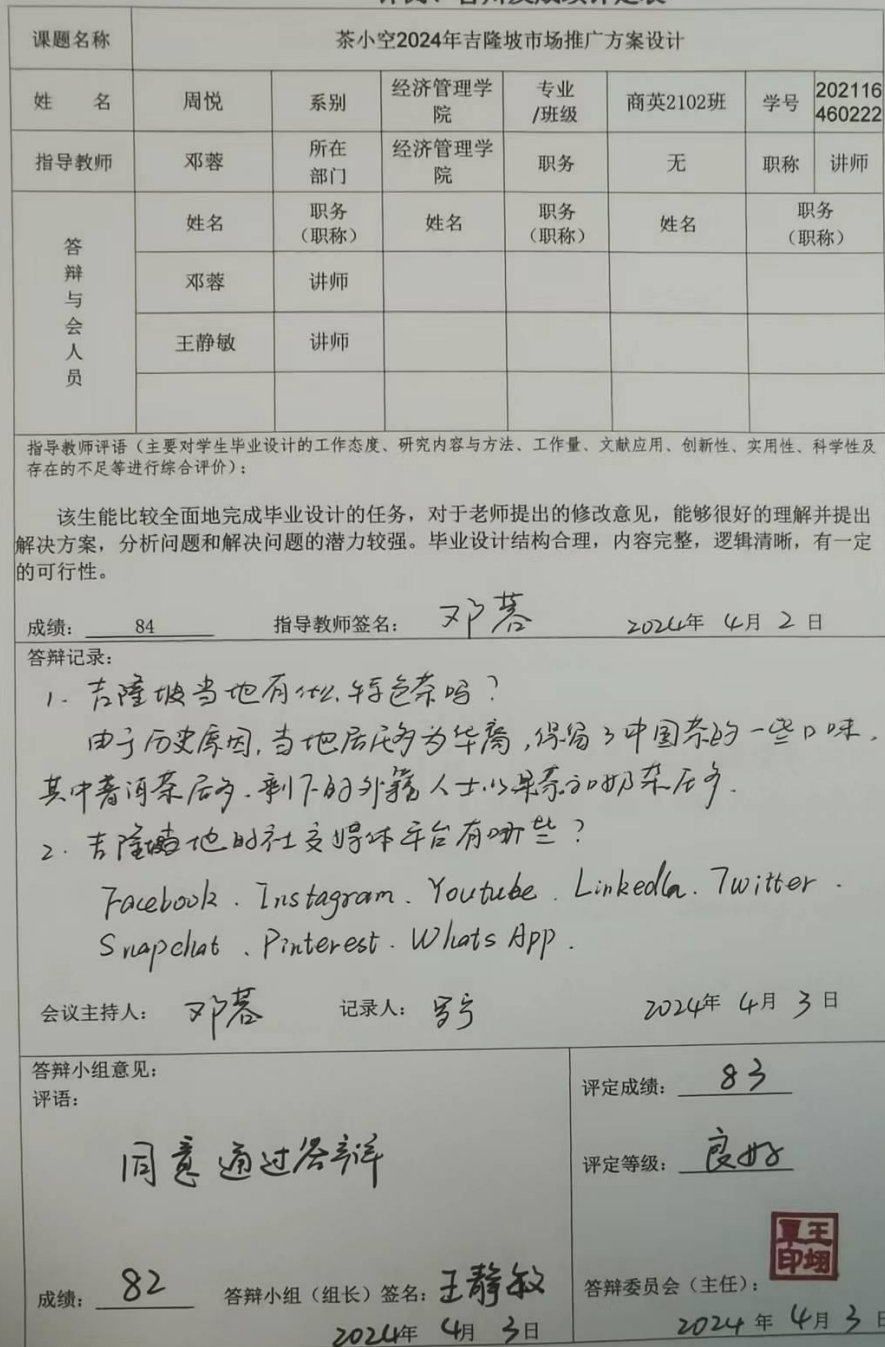 课题名称 茶小空2024年吉隆坡市场推广方案设计
姓 名 周悦 系别 经济管理学院 专业/班级 商英2102班 学号 202116460222
指导教师 邓蓉 所在部门 经济管理学院 职务 无 职称 讲师
答辩与会人员 姓名 职务（职称） 姓名 职务（职称） 姓名 职务（职称）
邓蓉 讲师
王静敏 讲师
指导教师评语（主要对学生毕业设计的工作态度、研究内容与方法、工作量、文献应用、创新性、实用性、科学性及
存在的不足等进行综合评价）：
该生能比较全面地完成毕业设计的任务，对于老师提出的修改意见，能够很好的理解并提出
解决方案，分析问题和解决问题的潜力较强。毕业设计结构合理，内容完整，逻辑清晰，有一定
的可行性。
成绩： 84 指导教师签名： 邓蓉 2024年 4月 2 日
答辩记录：
1. 吉隆坡当地有什么特色茶吗？
由于历史原因，当地居民多为华裔，保留了中国茶的一些口味，
其中普洱茶居多．剩下的外籍人士以果茶和奶茶居多．
2. 吉隆坡当地的社交媒体平台有哪些？
Facebook . Instagram . Youtube . LinkedIn . Twitter .
Snapchat . Pinterest . WhatsApp .
会议主持人： 邓蓉 记录人： 2024年 4月 3 日
答辩小组意见：
评语：
同意通过答辩
成绩： 82 答辩小组（组长）签名：王静敏
2024年 4月 3日
评定成绩： 83
评定等级： 良好
答辩委员会（主任）：
2024 年 4月 3 日